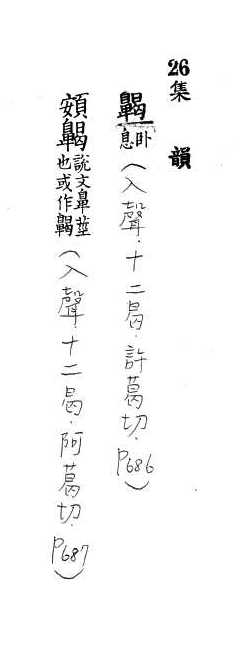 26集 韻
齃卧息(入聲·十二曷·許葛切·P686)
頞齃說文鼻莖也或作齃(入聲·十二曷·阿葛切·P687)